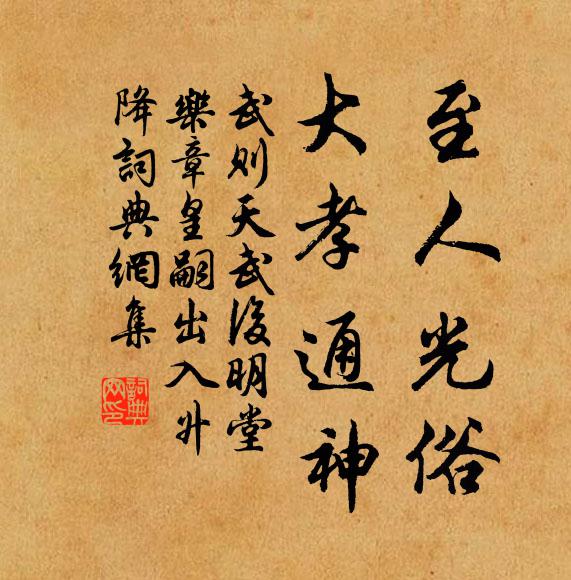 至人光俗
大孝通神
武則天武後明堂
樂章皇嗣出入升
降詞典網集